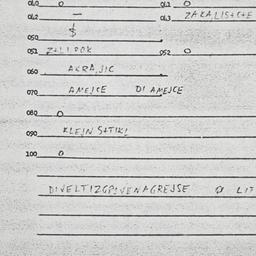 040 0 041 0
042 — 043 ZAKALISTCTE
050 $
051 ZTLIPOK 052 0
060 AKRAJIC
070 AMEJCE DI AMEJCE
080 0
090 KLEJNSTIKI
100 0
DIVELTIZGPIVENAGREJSE 0 LIT